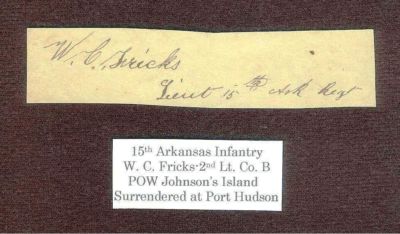 W. C. Fricks
Lieut 15th Ark Regt
15th Arkansas Infantry
W. C. Fricks-2nd Lt. Co. B
POW Johnson's Island
Surrendered at Port Hudson